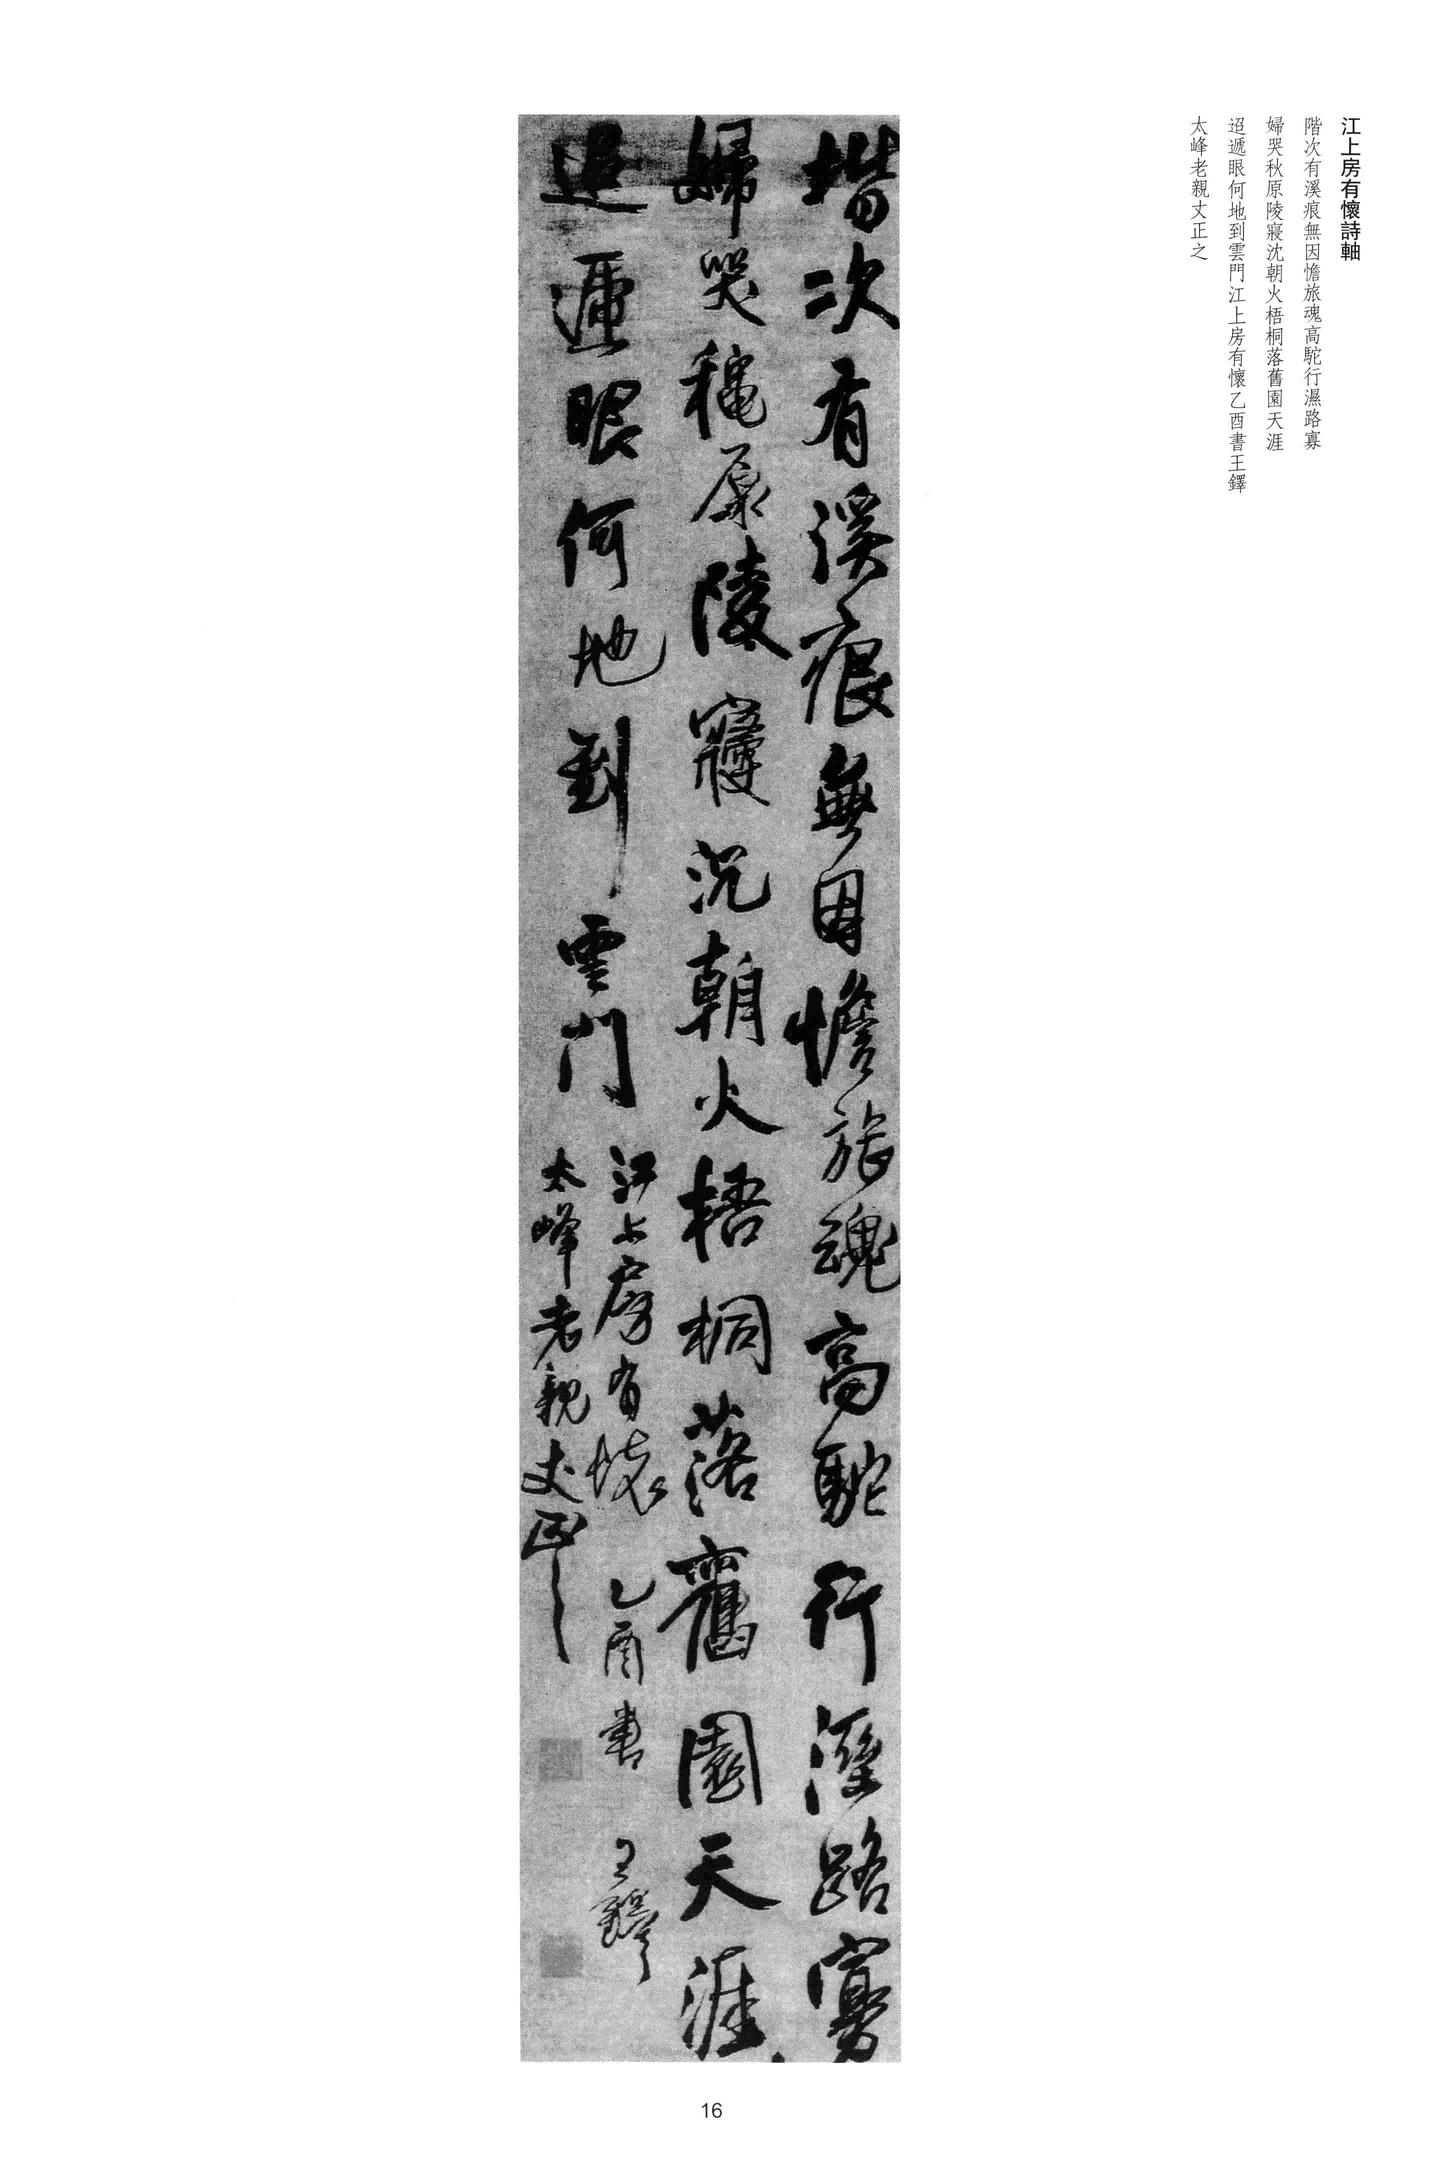 江上房有懷詩軸
階次有溪痕無因憺旅魂高駝行濕路寡
婦哭秋原陵寢沈朝火梧桐落舊園天涯
迢遞眼何地到雲門江上房有懷乙酉書王鐸
太峰老親丈正之
堦次有溪痕無因憺旅魂高駝行溼路寡
婦哭穐原陵寢沉朝火梧桐落舊園天涯
迢遞眼何地到雲門
江上房有懷 乙酉書 王鐸
太峰老親丈正之
16